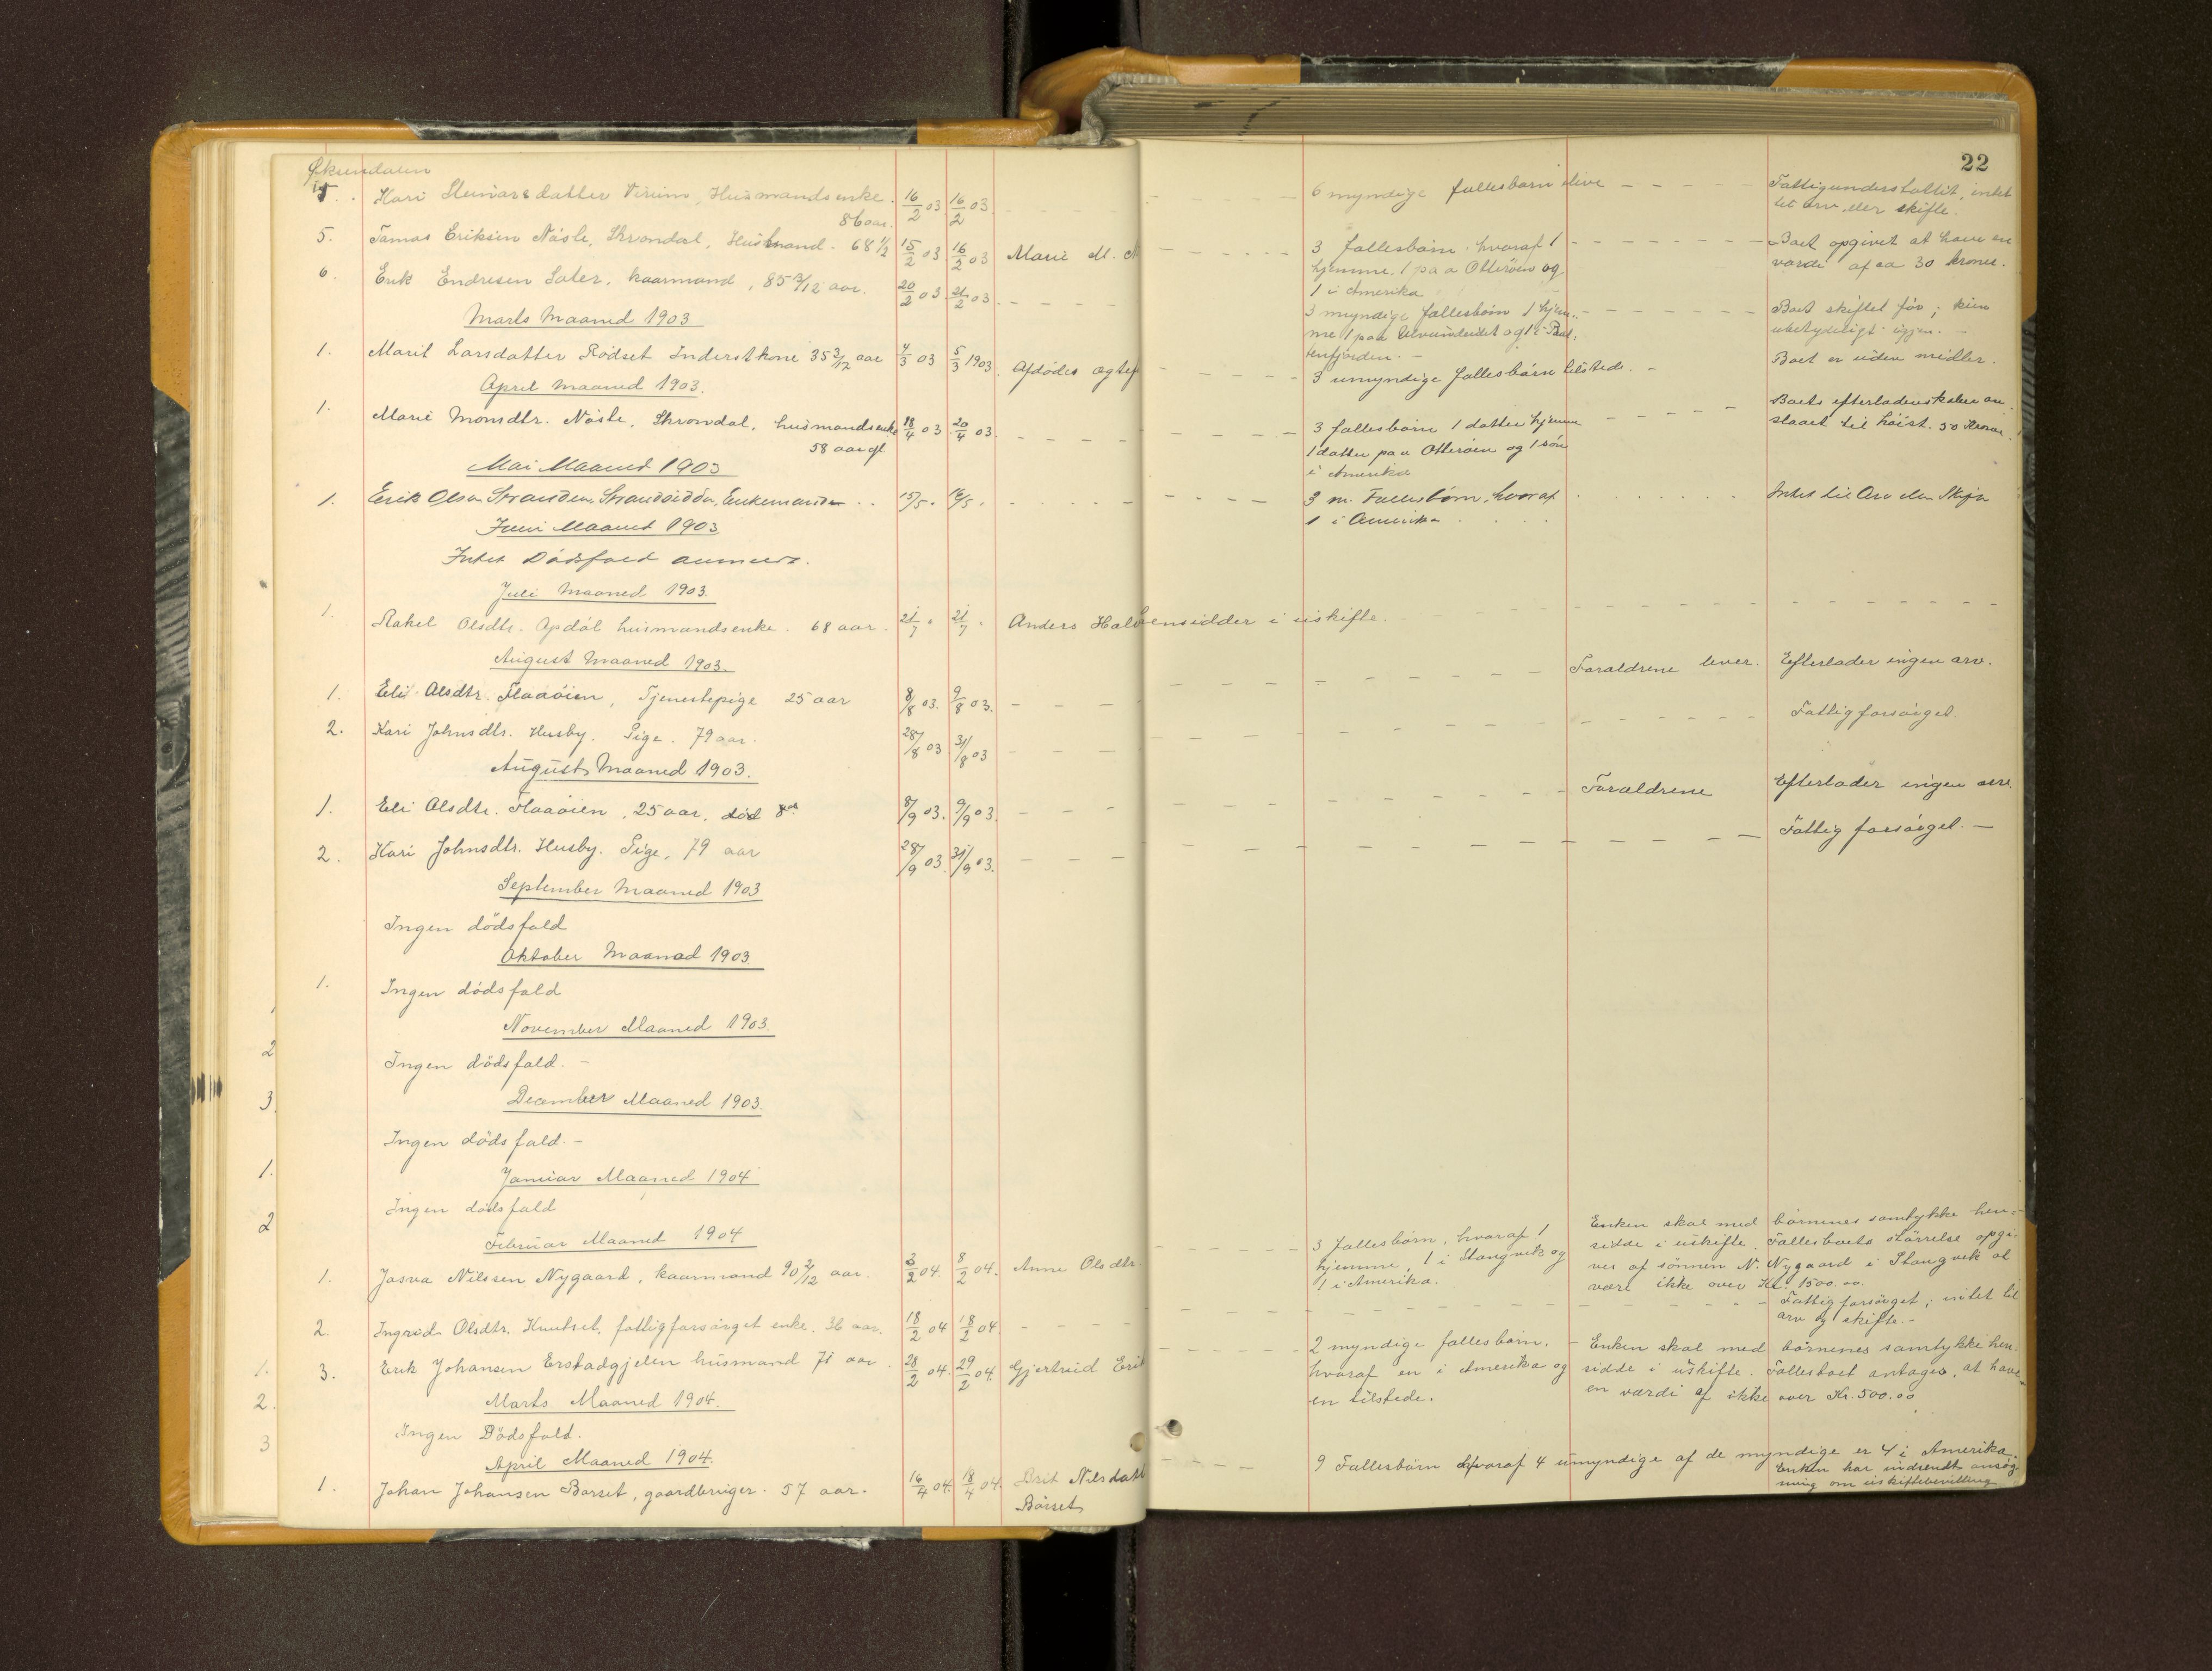 22
Økundalen
5. Kari Steinarsdatter Virum, Husmandsenke. 16/2 03 16/2 03. 6 myndige fællesbørn ilive Fattigunderstøttet, intet
86 aar. til arv eller skifte.
5. Tomas Eriksen Nåsle, Skrondal, Husmand. 68 1/2 15/2 03 16/2 03 Marie M. N 3 fællesbørn hvoraf 1 Boet opgivet at have en
hjemme, 1 paa Otterøen og værdi af ca 30 kroner.
1 i Amerika
6. Erik Endresen Sæter, kaarmand, 85 3/12 aar. 20/2 03. 21/2 03. 3 myndige fællesbørn 1 hjem- Boet skiftet før; kun
me 1 paa og 1 i Bat- ubetydeligt igjen. -
tenfjorden. -
Marts Maaned 1903
1. Marit Larsdatter Rødset Inderstkone 35 3/12 aar 4/3 03 5/3 1903. Afdødes ægtef 3 umyndige fællesbørn tilstede. - Boet er uden midler.
April Maaned 1903.
1. Marie Monsdtr. Nåsle, Skrondal, husmandsenke 18/4 03 20/4 03. 3 fællesbørn 1 datter hjemme Boets efterladenskaber an-
58 aar gl 1 datter paa Otterøen og 1 søn slaaet til høist. 50 Kroner.
i Amerika
Mai Maaned 1903
1. Erik Olsen Stranden, Enkemand 15/5. 16/5. 3 m. Fællesbørn, hvoraf Intet til Arv eller Skifte
1 i Amerika
Juni Maaned 1903
Intet Dødsfald anmeldt.
Juli Maaned 1903.
1. Rakel Olsdtr. Opdøl husmandsenke. 68 aar. 21/7 " 21/7 " Anders Halvensidder i uskifte.
August Maaned 1903.
1. Eli Olsdtr. Flaaøien, Tjenestepige 25 aar 8/8 03. 9/8 03. Forældrene lever. Efterlader ingen arv.
2. Kari Johnsdtr. Husby. Pige. 79 aar. 28/8 03. 31/8 03 Fattigforsørget.
August Maaned 1903.
1. Eli Olsdtr. Flaaøien, 25 aar, død 8de 8/9 03. 9/9 03. Forældrene Efterlader ingen arv.
2. Kari Johnsdtr. Husby. Pige, 79 aar 28/9 03. 31/9 03. Fattig forsørget. -
September Maaned 1903
Ingen dødsfald
Oktober Maaned 1903
1. Ingen dødsfald
November Maaned 1903.
Ingen dødsfald. -
December Maaned 1903.
Ingen dødsfald. -
Januar Maaned 1904
Ingen dødsfald
Februar Maaned 1904
1. Nilssen Nygaard, kaarmand 90 2/12 aar. 3/2 04. 8/2 04. Anne Olsdtr. 3 fællesbørn, hvoraf 1 Enken skal med børnenes samtykke hen-
hjemme, 1 i Stangvik og sidde i uskifte. Fællesboets størrelse opgi-
1 i Amerika. ves af sønnen N. Nygaard i Stangvik at
være ikke over Kr. 1500.00
2. Ingrid Olsdtr. Knutset, fattigforsørget enke. 36 aar. 18/2 04 18/2 04. Fattig forsørget; intet til
arv og skifte. -
3. Erik Johansen Erstadgjelen husmand 71 aar. 28/2 04. 29/2 04. Gjertrud Erik 2 myndige fællesbørn. - Enken skal med børnenes samtykke hen-
hvoraf en i Amerika og sidde i uskifte. Fællesboet antages, at have
en tilstede. en værdi af ikke over Kr. 500.00
Marts Maaned 1904.
Ingen Dødsfald.
April Maaned 1904.
1. Johan Johansen Børset, gaardbruger. 57 aar. 16/4 04. 18/4 04. Brit Nilsdatt 9 Fællesbørn hvoraf 4 umyndige af de myndige er 4 i Amerika.
Børset Enken har indsendt ansøg-
ning om uskiftebevilling
2
3.
1.
2
1.
2.
3